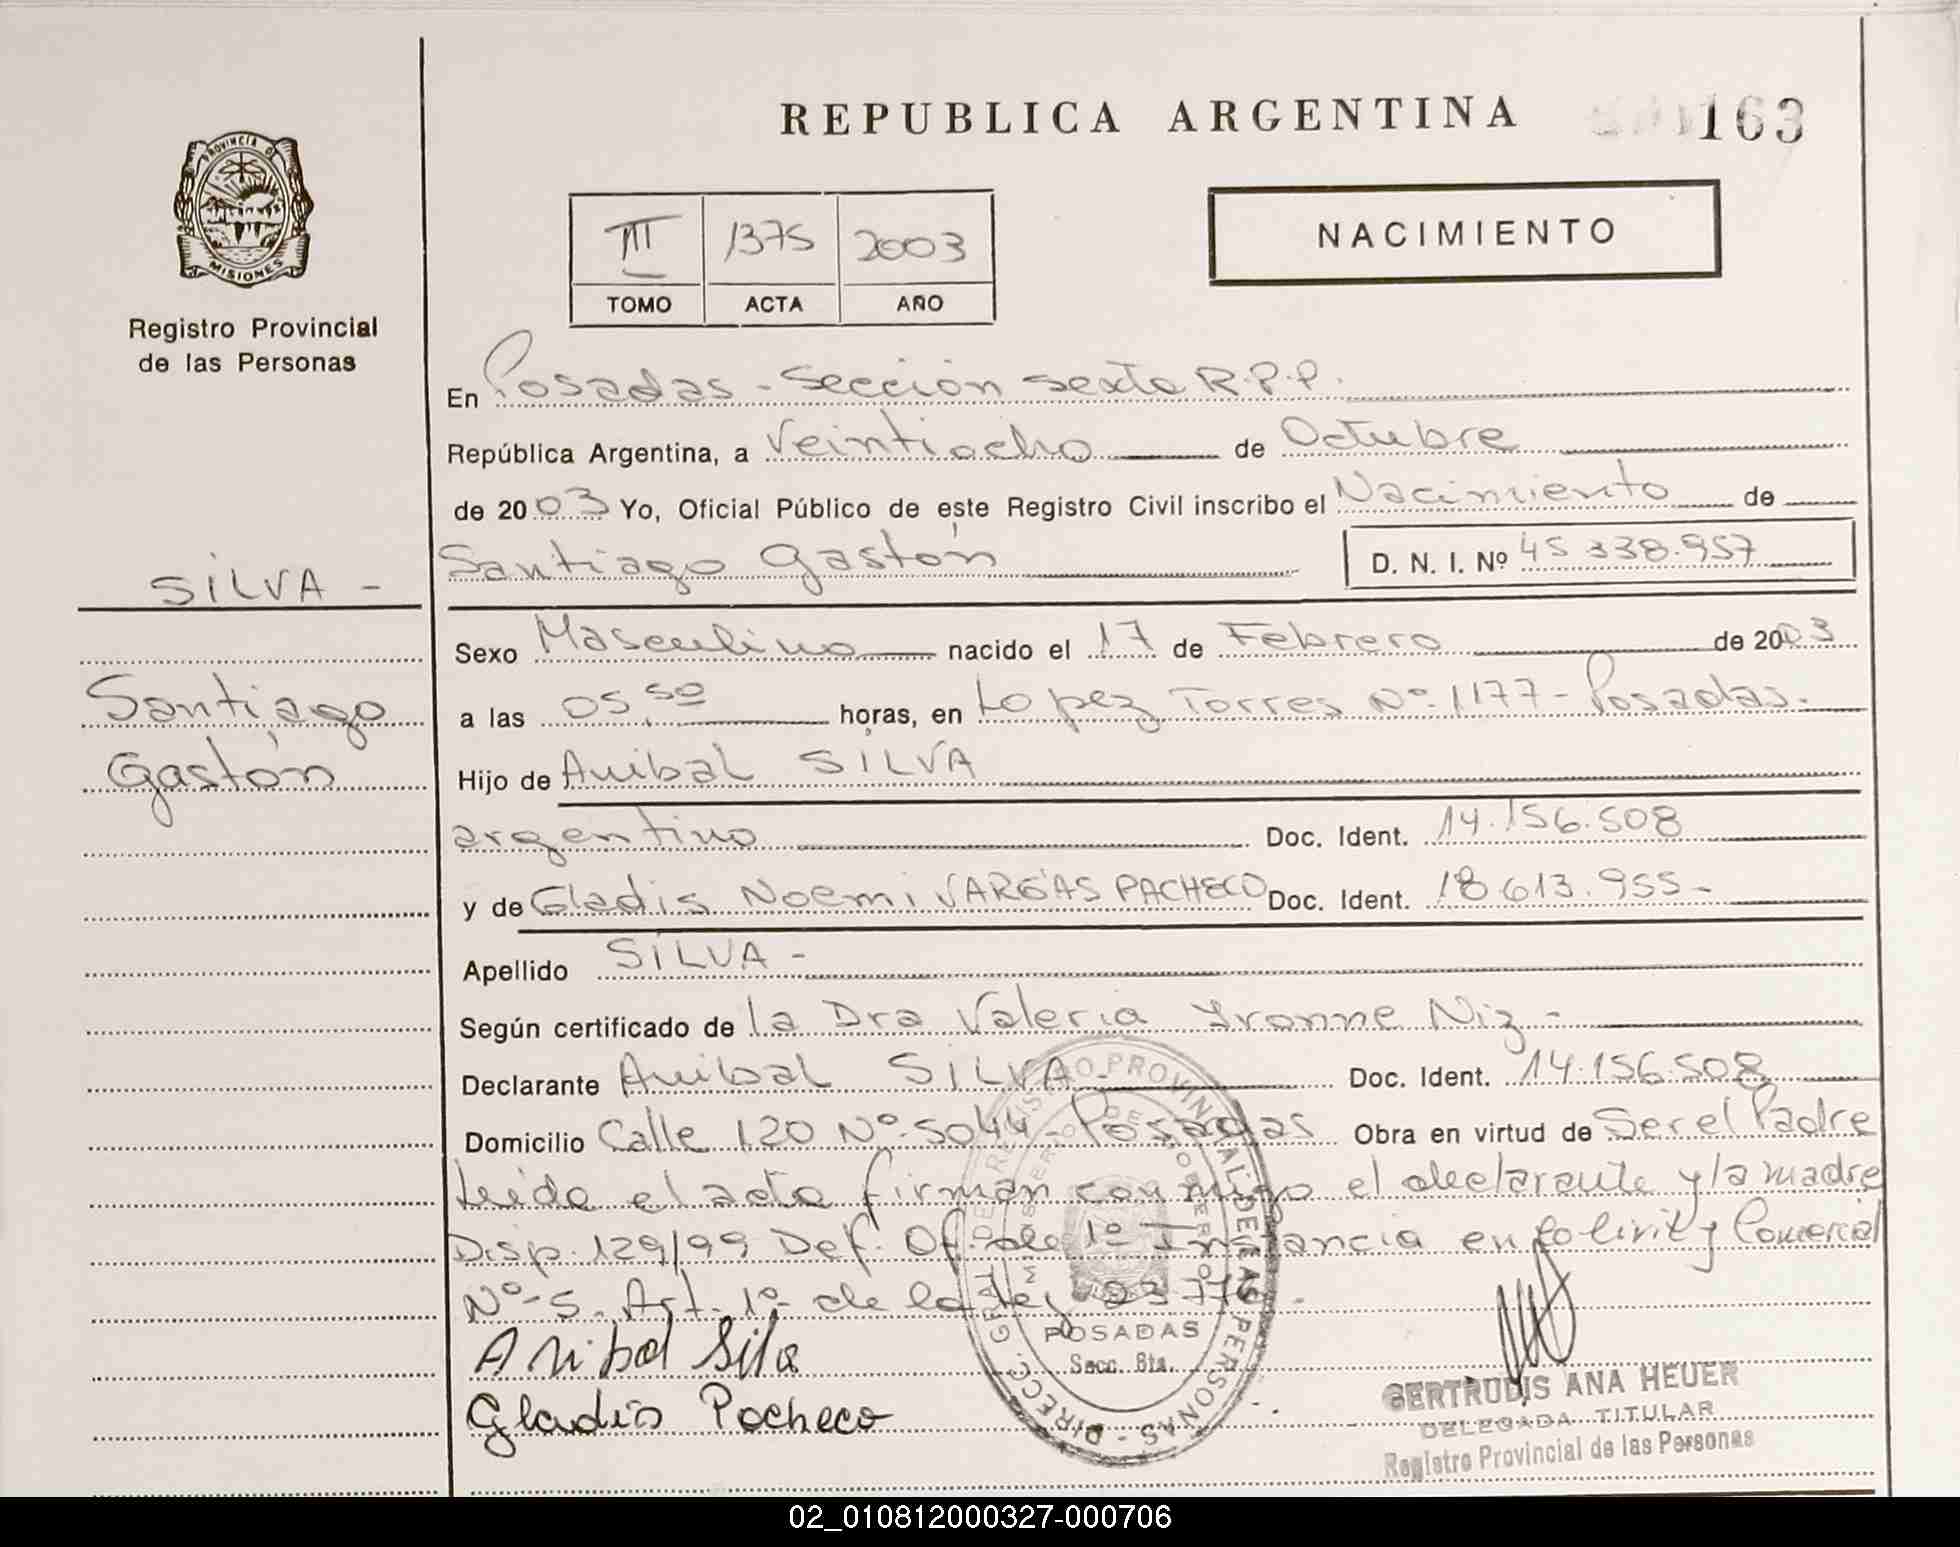 REPUBLICA ARGENTINA
163
PROVINCIA DE
MISIONES
Registro Provincial
de las Personas
III 1375 2003
TOMO ACTA AÑO
NACIMIENTO
En Posadas - Sección sexta R.P.P.
República Argentina, a Veintiocho de Octubre
de 2003 Yo, Oficial Público de este Registro Civil inscribo el Nacimiento de
Santiago Gastón
D. N. I. Nº 45 338.957
SILVA -
Santiago
Gastón
Sexo Masculino nacido el 17 de Febrero de 2003
a las 05,50 horas, en Lopez Torres Nº 1177 - Posadas.
Hijo de Anibal SILVA
argentino Doc. Ident. 14.156.508
y de Gladis Noemi VARGAS PACHECO Doc. Ident. 18.613.955-
Apellido SILVA -
Según certificado de la Dra Valeria Yvonne Niz -
Declarante Anibal SILVA Doc. Ident. 14.156.508
Domicilio Calle 120 Nº 5044 - Posadas Obra en virtud de Ser el Padre
Leida el acta firman conmigo el declarante y la madre
Disp. 129/99 Def. Of. de 1º Instancia en lo Civil y Comercial
Nº 5. Art. 1º de la Ley 23.776.
Anibal Silva
Gladis Pacheco
POSADAS
Secc. 6ta.
GERTRUDIS ANA HEUER
DELEGADA TITULAR
Registro Provincial de las Personas
02_010812000327-000706